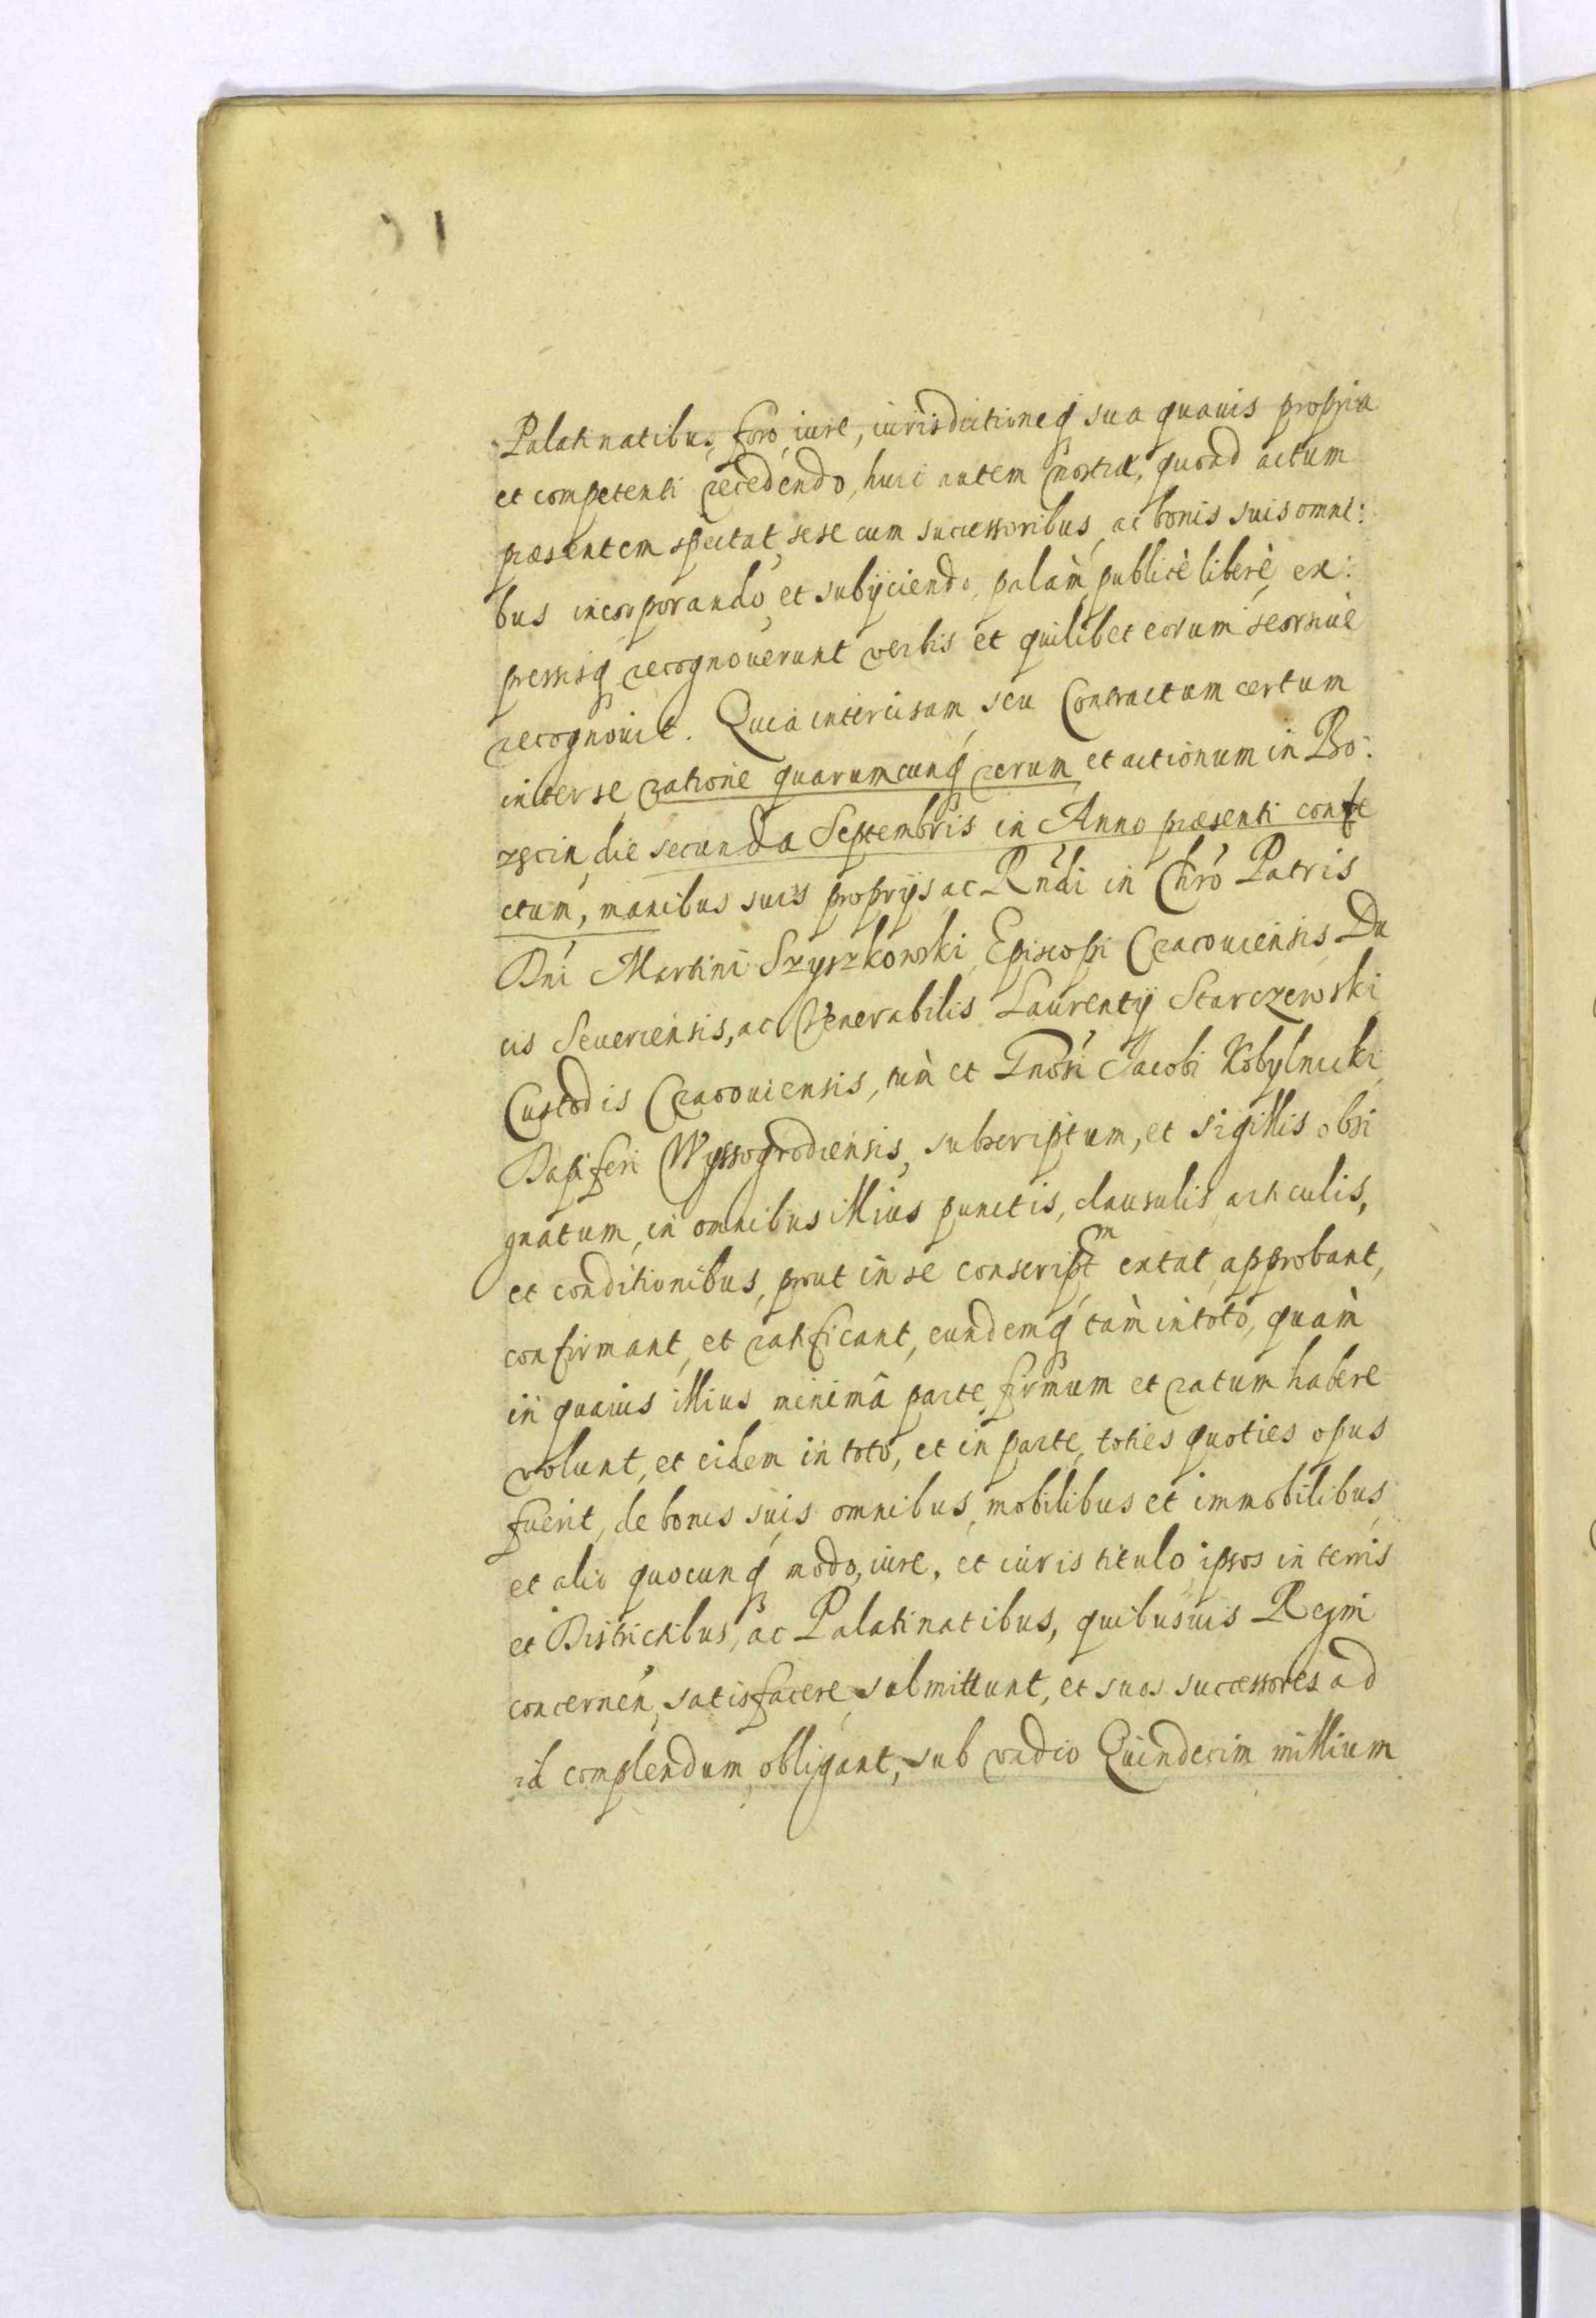 Palatinatibus, foro, iure, iurisdictioneq́ sua quauis propria
et competenti recedendo, huic autem nostræ, quoad actum
præsentem spectat, sese cum successoribus, ac bonis suis omni:
bus incorporando, et subijciendo, palàm, publicè liberè, ex:
pressisq́ recognouerunt verbis et quilibet eorum seorsiuè
recognouit. Quia intercisam, seu Contractum certum
inter se ratione quarumcunq́ rerum et actionum in Bo:
rzęcin, die secunda Septembris in Anno præsenti confe
ctum, manibus suis proprijs ac Rńdi in Chró Patris
Dńi Martini Szyszkowski, Episcopi Cracouiensis, Du
cis Seueriensis, ac Venerabilis Laurentij Starczewski
Custodis Cracouiensis, tùm et Gnósi Jacobi Kobylnicki
Dapiferi Wyssogrodiensis, subscriptum, et sigillis obsi
gnatum, in omnibus illius punctis, clausulis, articulis,
et conditionibus, prout in se conscriptm extat, approbant,
confirmant, et ratificant, eundemq́ tàm in toto, quàm
in quauis illius minimâ parte, firmum et ratum habere
volunt, et eidem in toto, et in parte, toties quoties opus
fuerit, de bonis suis omnibus, mobilibus et immobilibus,
et alio quocunq́ modo, iure, et iuris titulo ipsos in terris
et Districtibus, ac Palatinatibus, quibusuis Regni
concerneń, satisfacere submittunt, et suos successores ad
id complendum obligant, sub vadio Quindecim millium